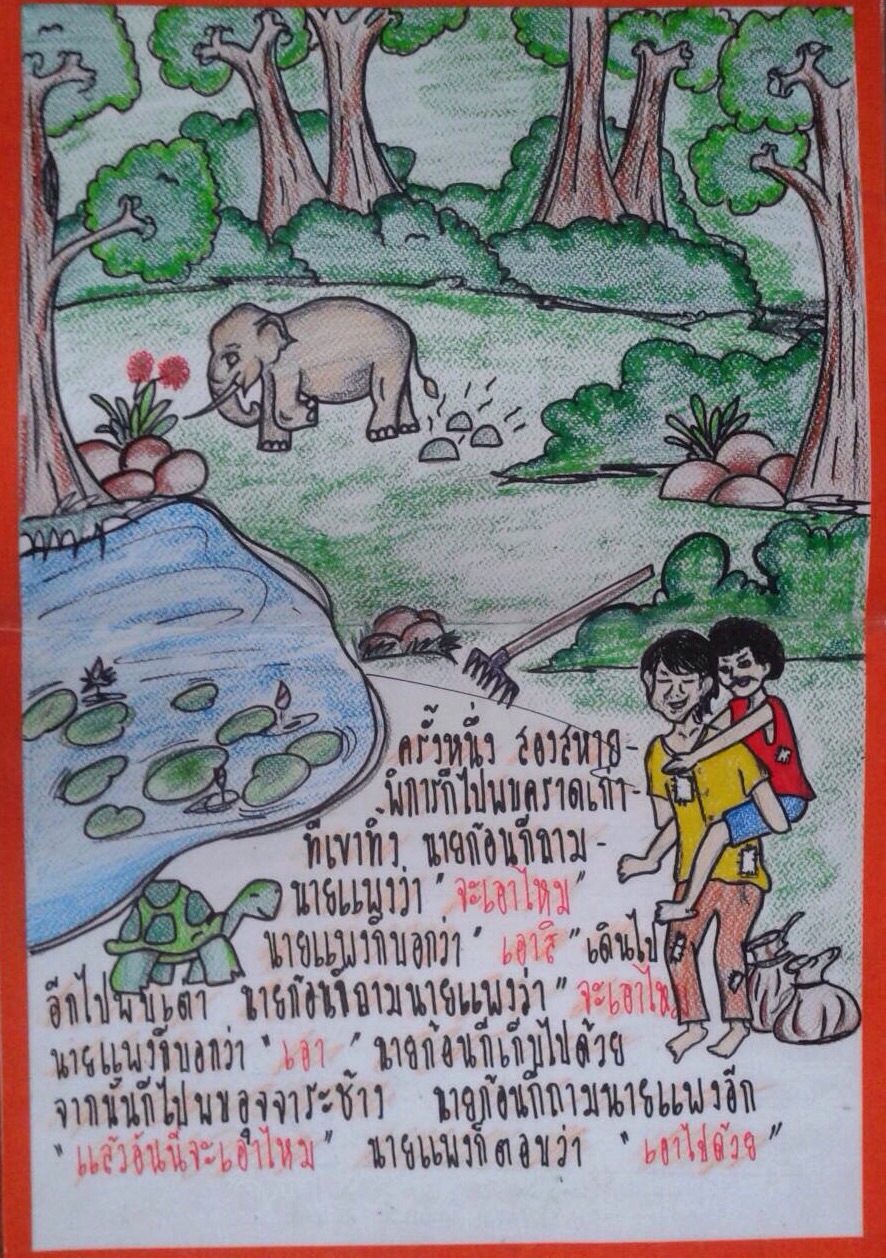 ครั้งหนึ่ง สองสหาย-
พิการก็ไปพบคราดเก่า-
ที่เขาทิ้ง นายก้อนก็ถาม-
นายแพงว่า "จะเอาไหม"
นายแพงก็บอกว่า "เอาสิ" เดินไป
อีกไปพบเต่า นายก้อนก็ถามนายแพงว่า "จะเอาไหม
นายแพงก็บอกว่า "เอา" นายก้อนก็เก็บไปด้วย
จากนั้นก็ไปพบอุจจาระช้าง นายก้อนก็ถามนายแพงอีก
"แล้วอันนี้จะเอาไหม" นายแพงก็ตอบว่า "เอาไปด้วย"